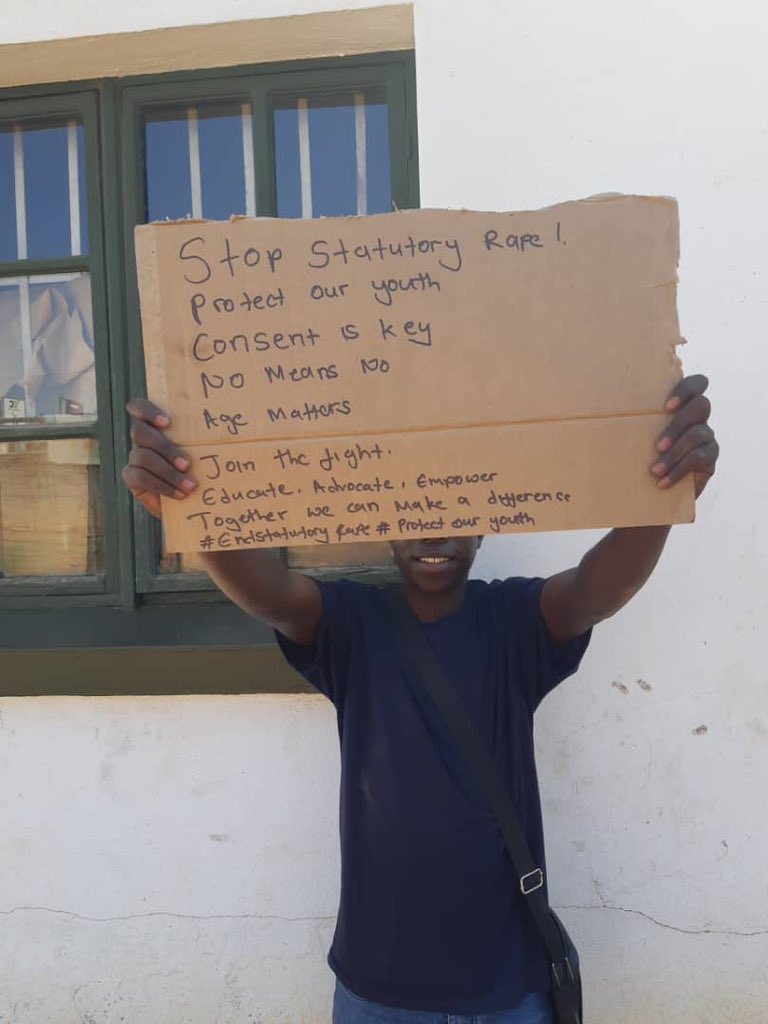 Stop Statutory Rape!
Protect our youth
Consent is key
No Means No
Age Matters
Join the fight.
Educate. Advocate, Empower
Together we can make a difference
#Endstatutory Rape # Protect our youth